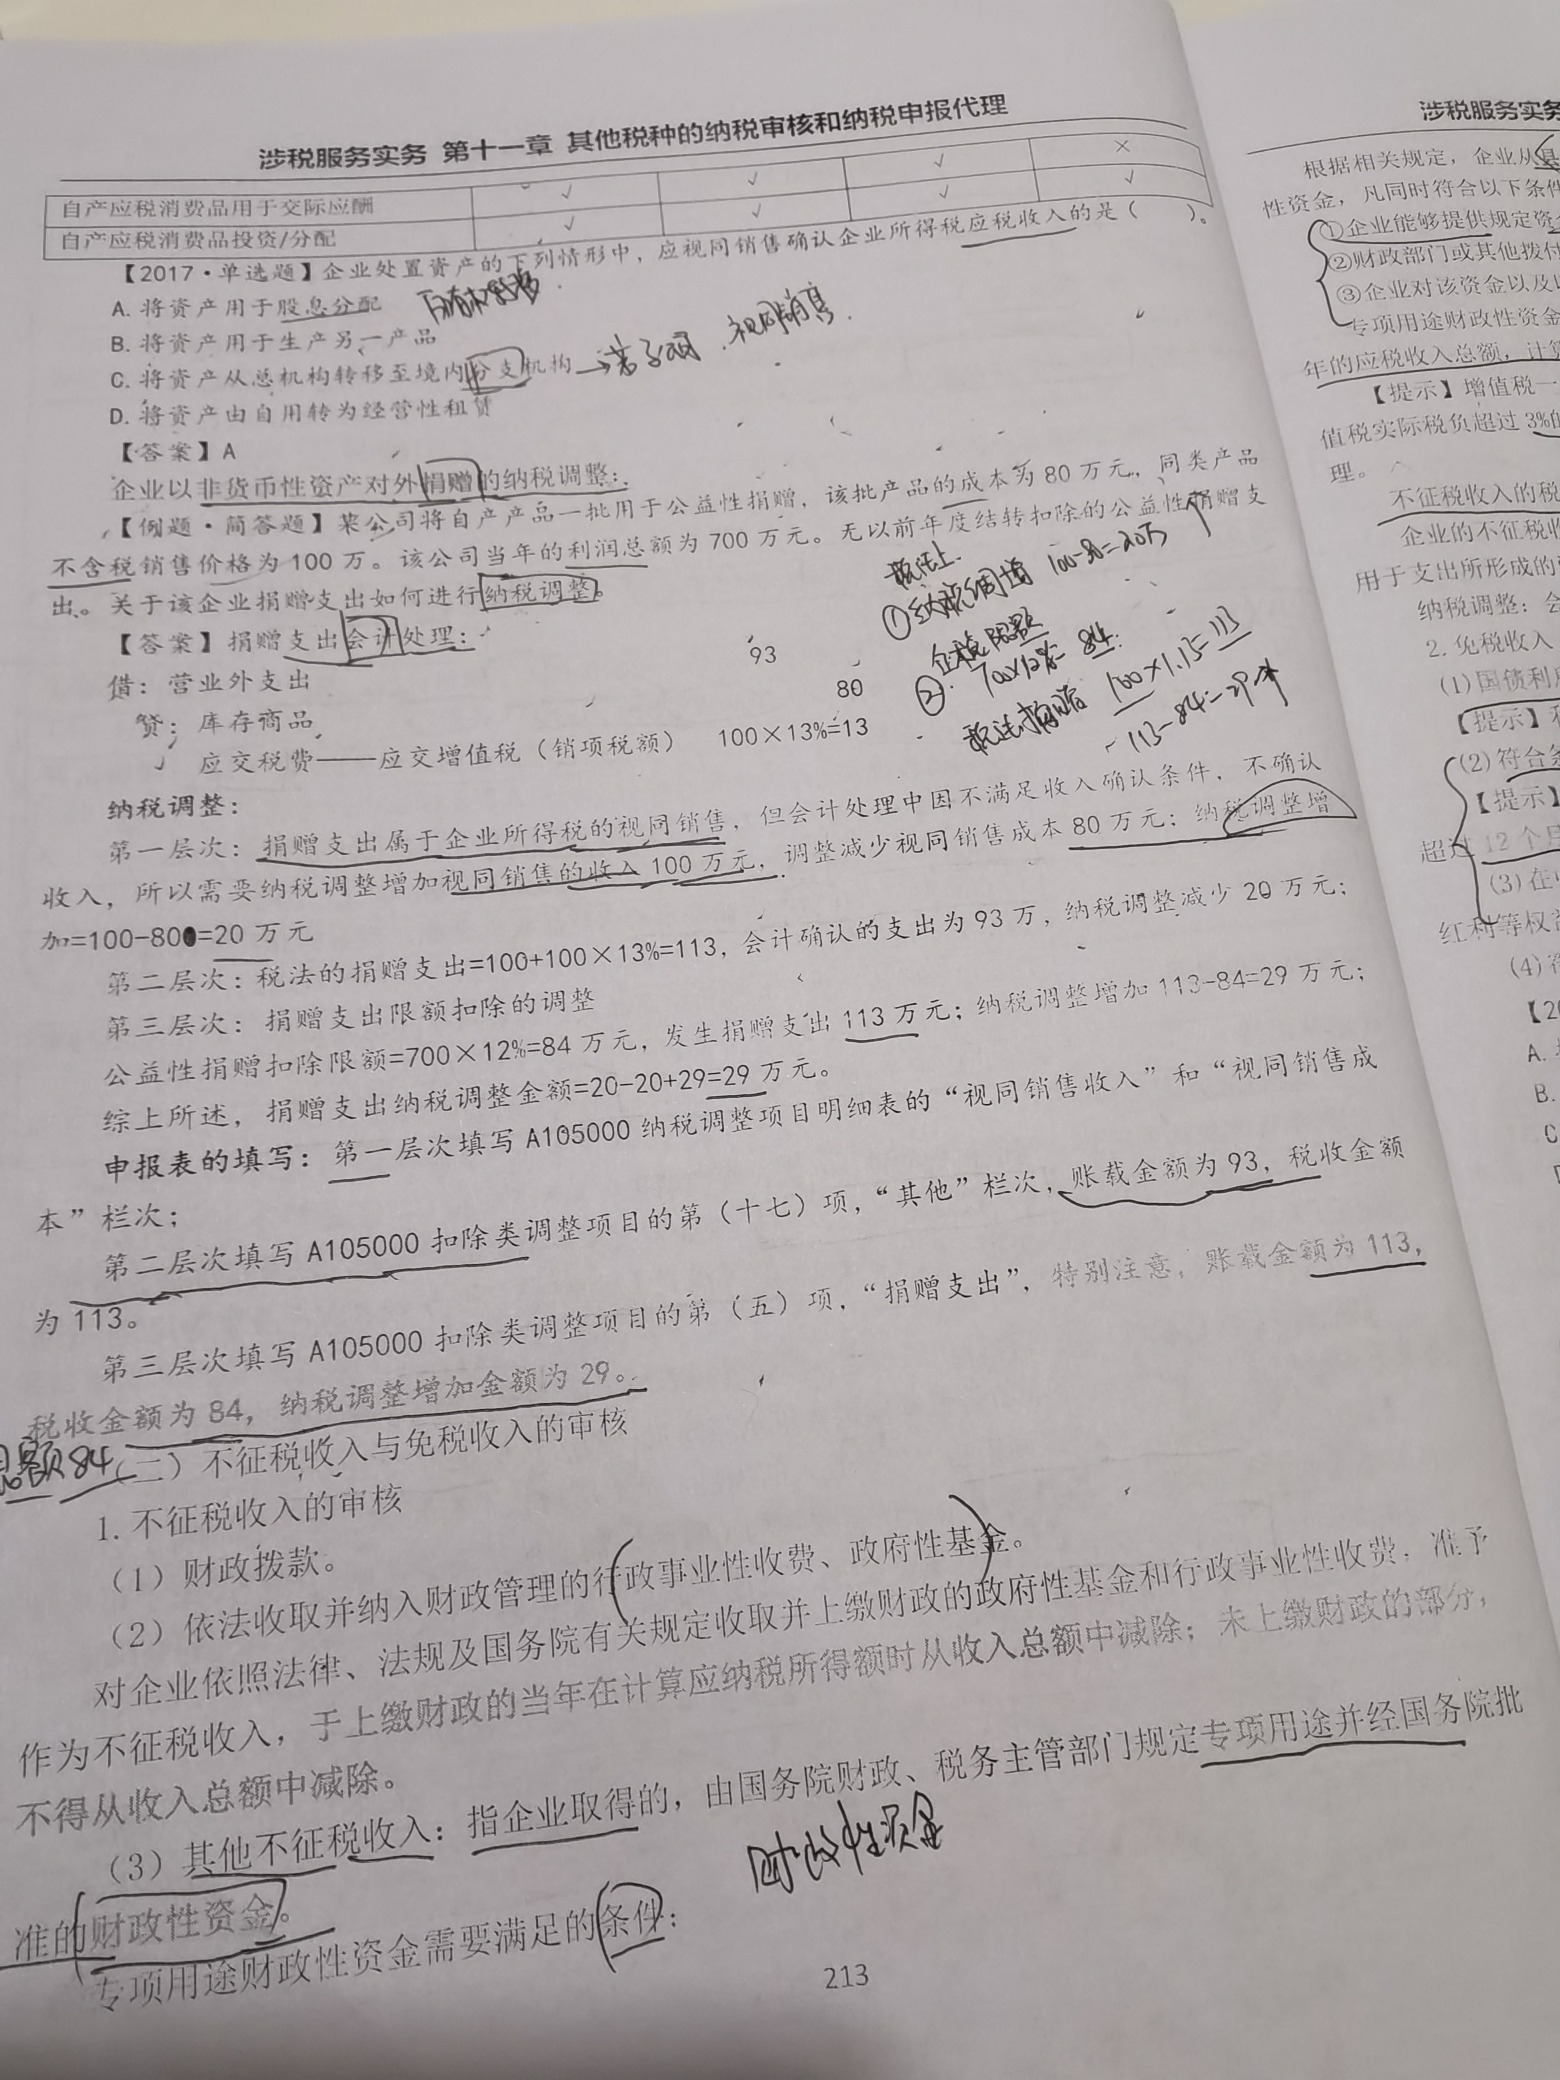 涉税服务实务 第十一章 其他税种的纳税审核和纳税申报代理
自产应税消费品用于交际应酬 √ √ √ ×
自产应税消费品投资/分配 √ √ √ √
【2017·单选题】企业处置资产的下列情形中，应视同销售确认企业所得税应税收入的是（ ）。
A. 将资产用于股息分配
B. 将资产用于生产另一产品
C. 将资产从总机构转移至境内分支机构 → 若子公司．视同销售．
D. 将资产由自用转为经营性租赁
【答案】A
企业以非货币性资产对外捐赠的纳税调整：
【例题·简答题】某公司将自产产品一批用于公益性捐赠，该批产品的成本为 80 万元，同类产品
不含税销售价格为 100 万。该公司当年的利润总额为 700 万元。无以前年度结转扣除的公益性捐赠支
出。关于该企业捐赠支出如何进行纳税调整。
税法上
①纳税调增 100-80=20万 ↑
企税限额
②. 700×12%=84.
税法捐赠 100×1.13=113
113-84=29 ↑
【答案】捐赠支出会计处理：
借：营业外支出 93
贷：库存商品 80
应交税费——应交增值税（销项税额） 100×13%=13
纳税调整：
第一层次：捐赠支出属于企业所得税的视同销售，但会计处理中因不满足收入确认条件，不确认
收入，所以需要纳税调整增加视同销售的收入 100 万元，调整减少视同销售成本 80 万元；纳税调整增
加=100-80=20 万元
第二层次：税法的捐赠支出=100+100×13%=113，会计确认的支出为 93 万，纳税调整减少 20 万元；
第三层次：捐赠支出限额扣除的调整
公益性捐赠扣除限额=700×12%=84 万元，发生捐赠支出 113 万元；纳税调整增加 113-84=29 万元；
综上所述，捐赠支出纳税调整金额=20-20+29=29 万元。
申报表的填写：第一层次填写 A105000 纳税调整项目明细表的“视同销售收入”和“视同销售成
本”栏次；
第二层次填写 A105000 扣除类调整项目的第（十七）项，“其他”栏次，账载金额为 93，税收金额
为 113。
第三层次填写 A105000 扣除类调整项目的第（五）项，“捐赠支出”，特别注意，账载金额为 113，
税收金额为 84，纳税调整增加金额为 29。
额84
（二）不征税收入与免税收入的审核
1. 不征税收入的审核
（1）财政拨款。
（2）依法收取并纳入财政管理的行政事业性收费、政府性基金。
对企业依照法律、法规及国务院有关规定收取并上缴财政的政府性基金和行政事业性收费，准予
作为不征税收入，于上缴财政的当年在计算应纳税所得额时从收入总额中减除；未上缴财政的部分，
不得从收入总额中减除。
（3）其他不征税收入：指企业取得的，由国务院财政、税务主管部门规定专项用途并经国务院批
准的财政性资金。
财政性资金
专项用途财政性资金需要满足的条件：
213
涉税服务实务
根据相关规定，企业从县
性资金，凡同时符合以下条件
①企业能够提供规定资金
②财政部门或其他拨付
③企业对该资金以及以
专项用途财政性资金
年的应税收入总额，计算
【提示】增值税一
值税实际税负超过 3%的
理。
不征税收入的税
企业的不征税收
用于支出所形成的
纳税调整：会
2. 免税收入
(1)国债利
【提示】
(2)符合条
【提示】
超过 12 个月
(3)在
红利等权
(4)符
【20
A.
B.
C